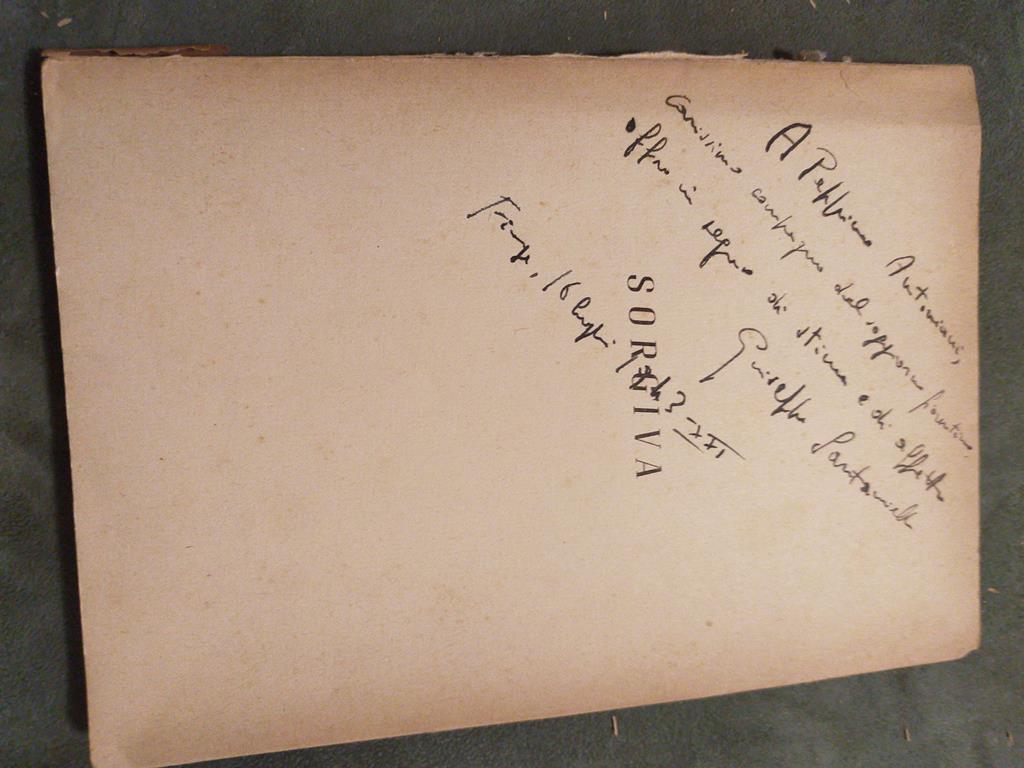 A Peppino Antoniani,
carissimo compagno del soggiorno fiorentino
offro in segno di stima e di affetto
Giuseppe Santonicola
16 luglio 1943-XXI
SORGIVA